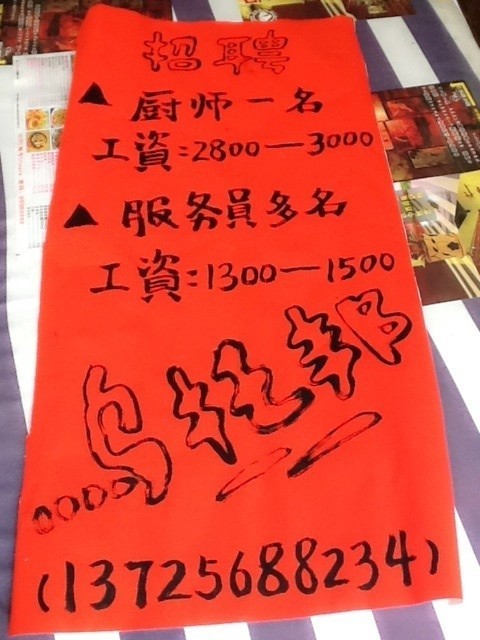 招聘
▲厨师一名
工資:2800—3000
▲服务員多名
工資:1300—1500
乌托邦
(13725688234)